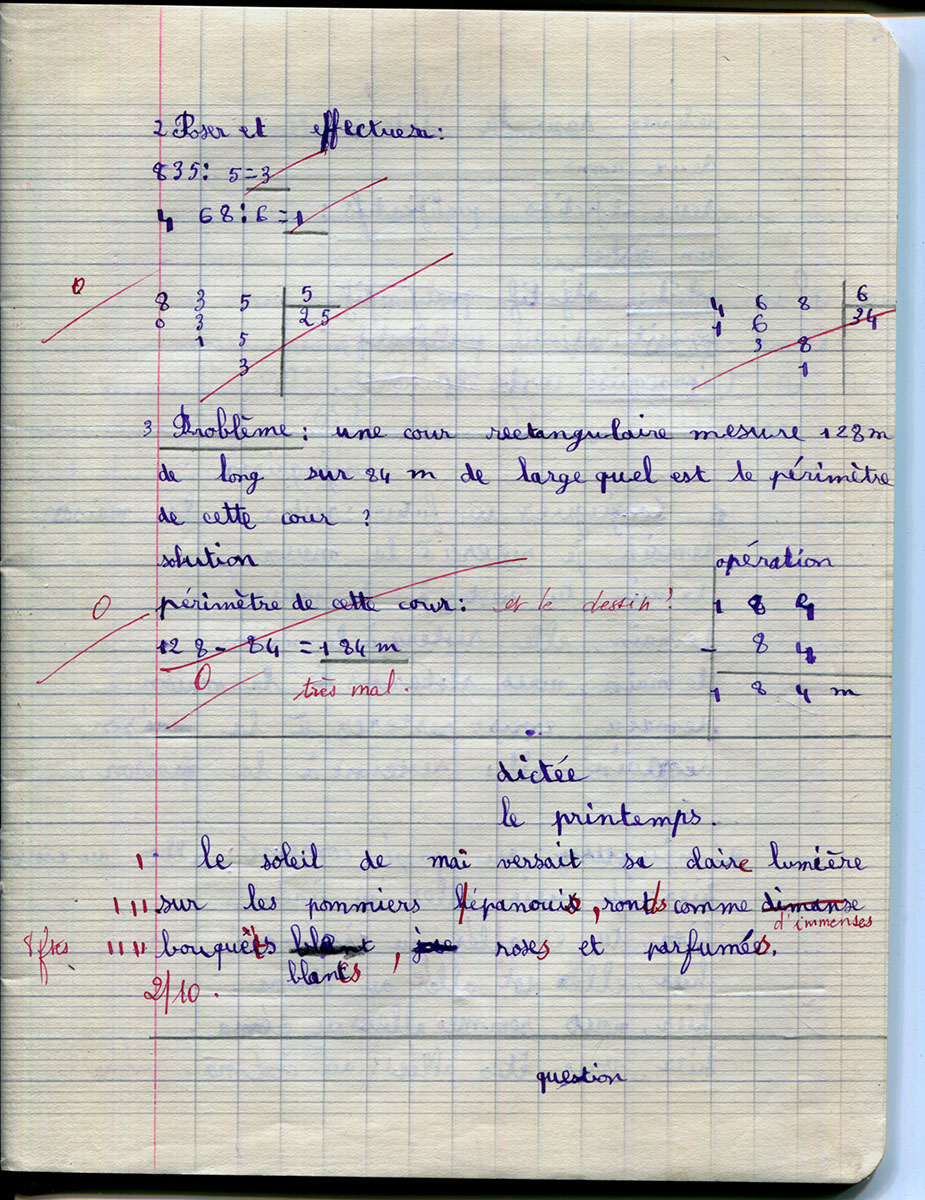 2 Poser et effectuer:
835: 5=3
4 68:6=1
0
8 3 5 5
0 3 25
1 5
3
4 6 8 6
1 6 34
3 8
1
3 Problème: une cour rectangulaire mesure 128m
de long sur 84 m de large quel est le périmètre
de cette cour ?
solution opération
0 périmètre de cette cour: et le dessin! 1 8 4
128- 84 =184m - 8 4
0 très mal. 1 8 4 m
dictée
le printemps.
le soleil de mai versait sa claire lumière
sur les pommiers épanouis, ronds comme dimanse
d'immenses
8 ftes bouquets blant, roses et parfumés.
blancs
2/10.
question